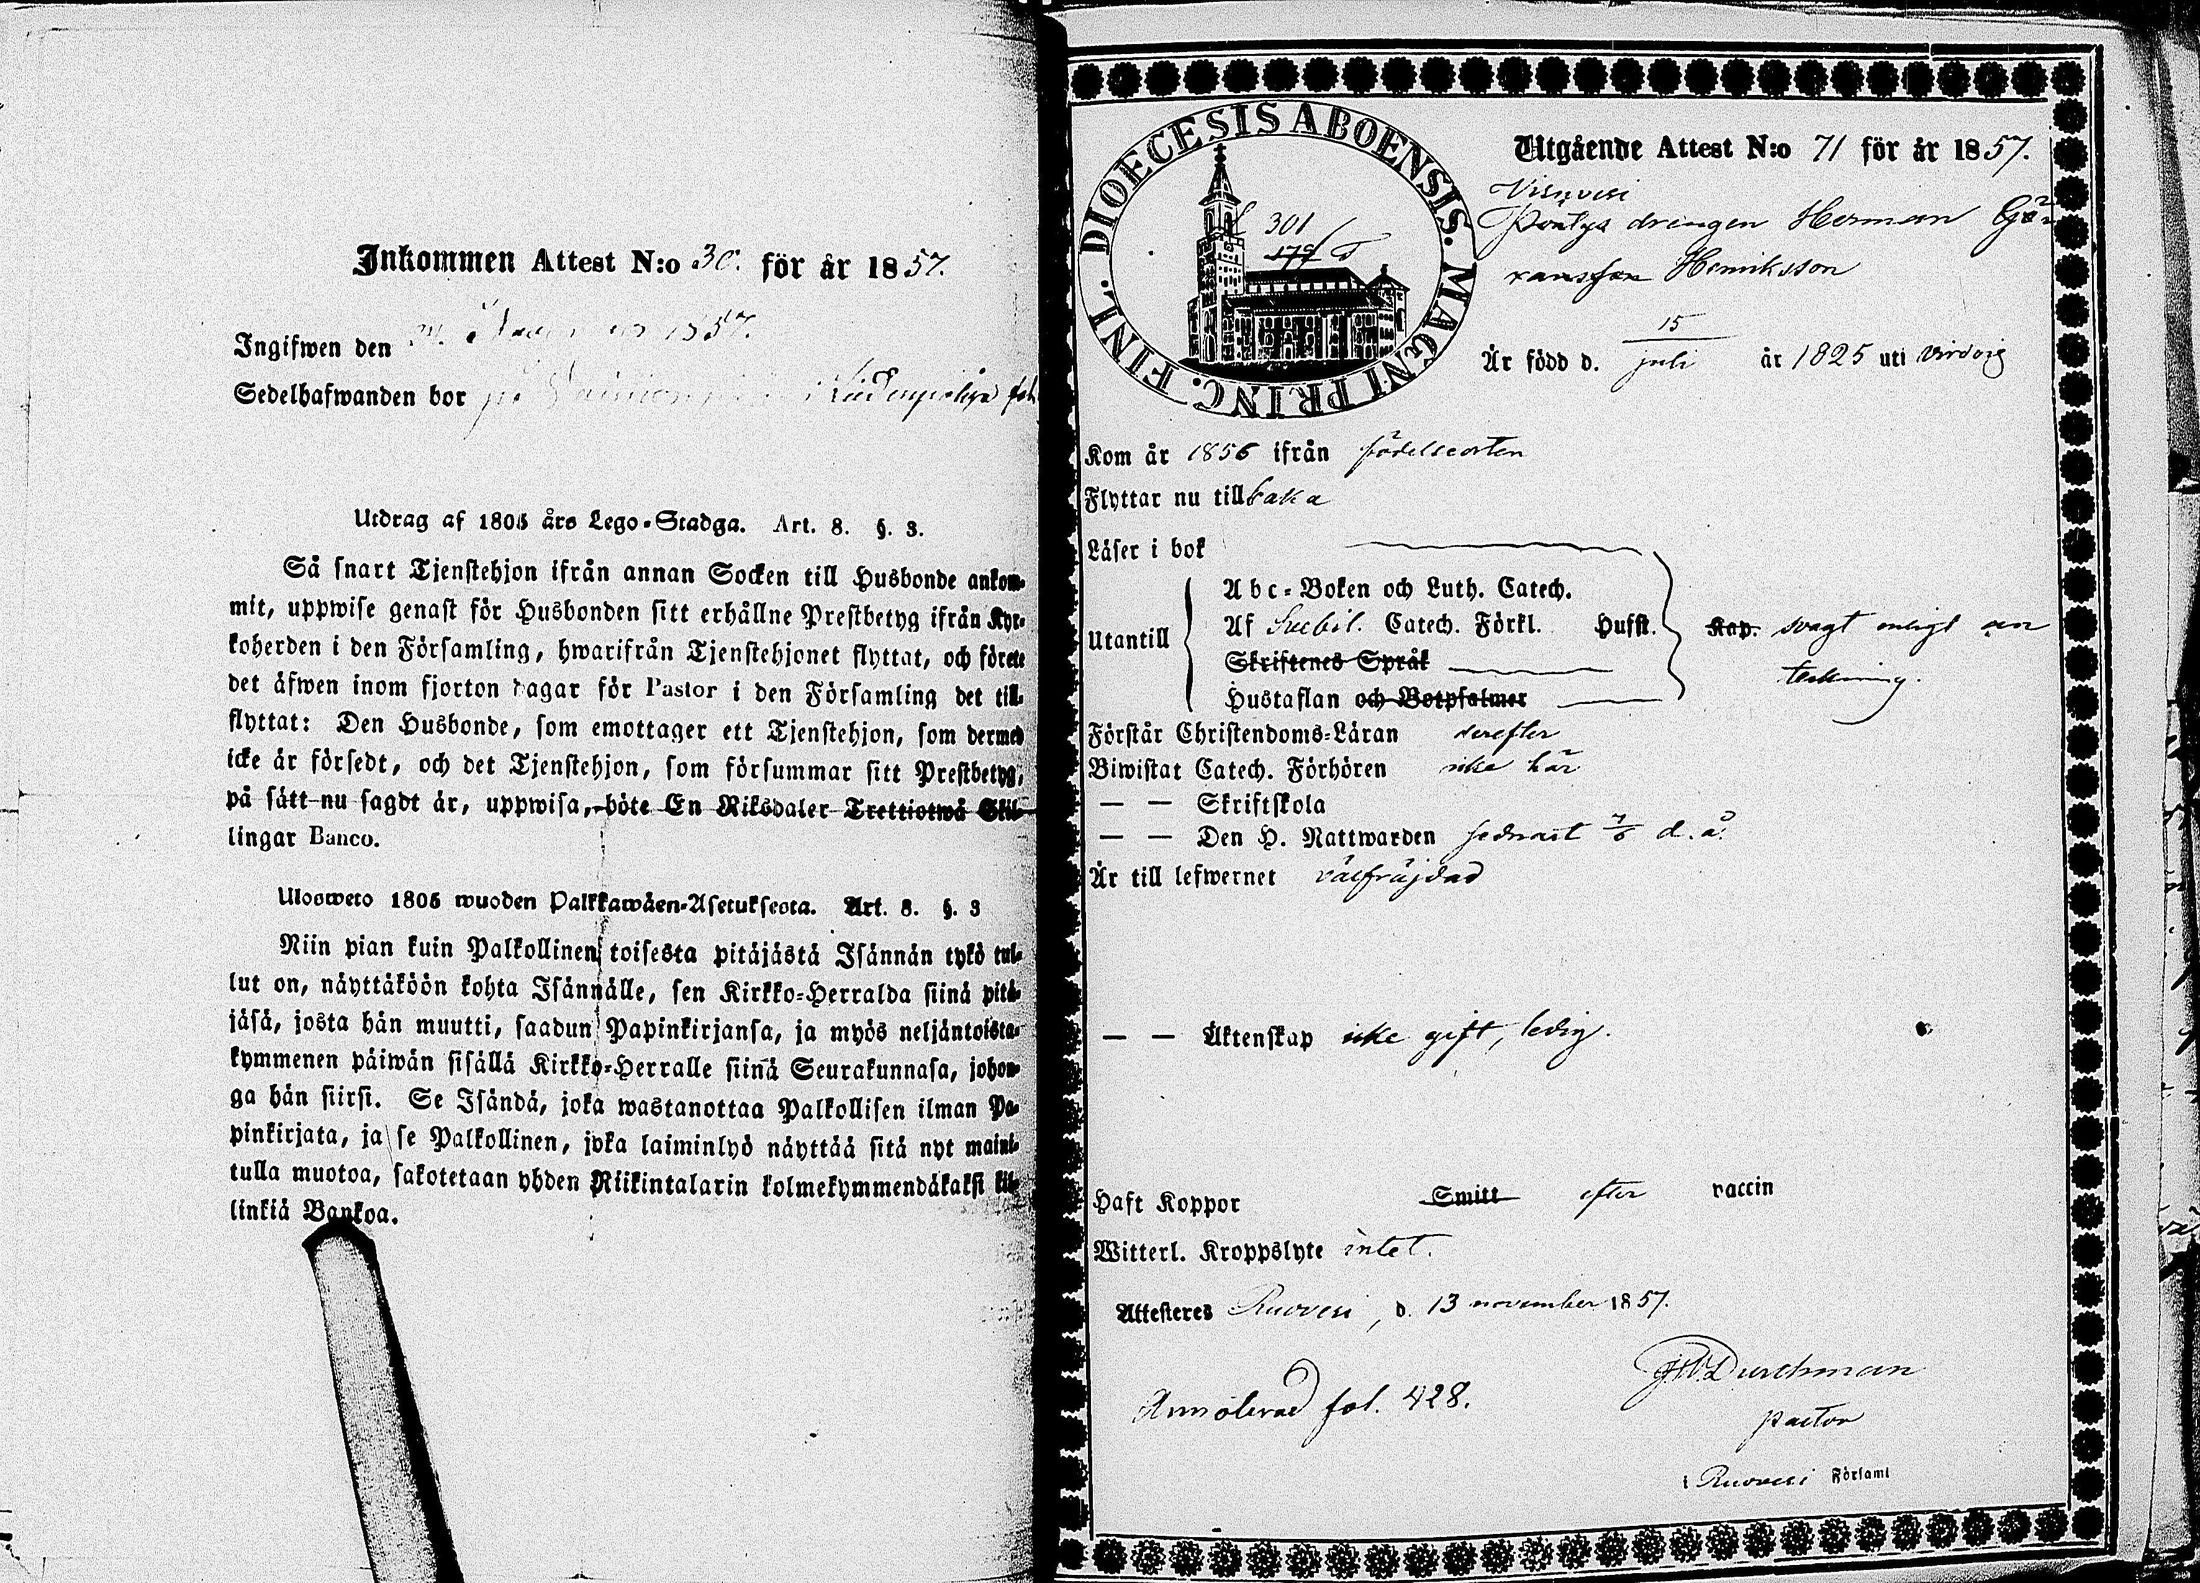 Inkommen Attest N:o 30. för år 1857.
Ingifwen den 1857.
Sedelhafwanden bor på
Utdrag af 1805 års Lego-Stadga. Art. 8. §. 3.
Så snart Tjenstehjon ifrån annan Socken till Husbonde ankom-
mit, uppwise genast för Husbonden sitt erhållne Prestbetyg ifrån Kyr-
koherden i den Församling, hwarifrån Tjenstehjonet flyttat, och förete
det äfwen inom fjorton dagar för Pastor i den Församling det till-
flyttat: Den Husbonde, som emottager ett Tjenstehjon, som dermed
icke är försedt, och det Tjenstehjon, som försummar sitt Prestbetyg,
på sätt nu sagdt är, uppwisa, böte En Riksdaler Trettiotwå Skil-
lingar Banco.
Ulosweto 1805 wuoden Palkkawäen-Asetuksesta. Art. 8. §. 3
Niin pian kuin Palkollinen toisesta pitäjästä Isännän tykö tul-
lut on, näyttäköön kohta Isännälle, sen Kirkko-Herralda siinä pitä-
jäsä, josta hän muutti, saadun Papinkirjansa, ja myös neljäntoista-
kymmenen päiwän sisällä Kirkko-Herralle siinä Seurakunnasa, johon-
ga hän siirsi. Se Isändä, joka wastanottaa Palkollisen ilman Pa-
pinkirjata, ja se Palkollinen, joka laiminlyö näyttää sitä nyt maini-
tulla muotoa, sakotetaan yhden Riikintalarin kolmekymmendäkaksi kil-
linkiä Bankoa.
DIOECESIS ABOENSIS. MAGNI PRINC. FINL.
301
179
Utgående Attest N:o 71 för år 1857.
Visuvesi
drengen Herman Gö-
ransson Henriksson
Är född d. 15 juli år 1825 uti Virdois
Kom år 1856 ifrån födelseorten
Flyttar nu tillbaka
Läser i bok
Utantill
Abc-Boken och Luth. Catech.
Af Svebil. Catech. Förkl. Hufst. Kap. svagt enligt an
Skriftenes Språk
teckning.
Hustaflan och Botpsalmer
Förstår Christendoms-Läran derefter
Biwistat Catech. Förhören icke här
— — Skriftskola
— — Den H. Nattwarden sednast 7/6 d. å.
Är till lefwernet välfräjdad
— — Äktenskap icke gift, ledig.
Haft Koppor Smitt efter vaccin
Witterl. Kroppslyte intet.
Attesteres Ruovesi, d. 13 november 1857.
Durchman
Annoterad fol. 428.
pastor
i Ruovesi Församl